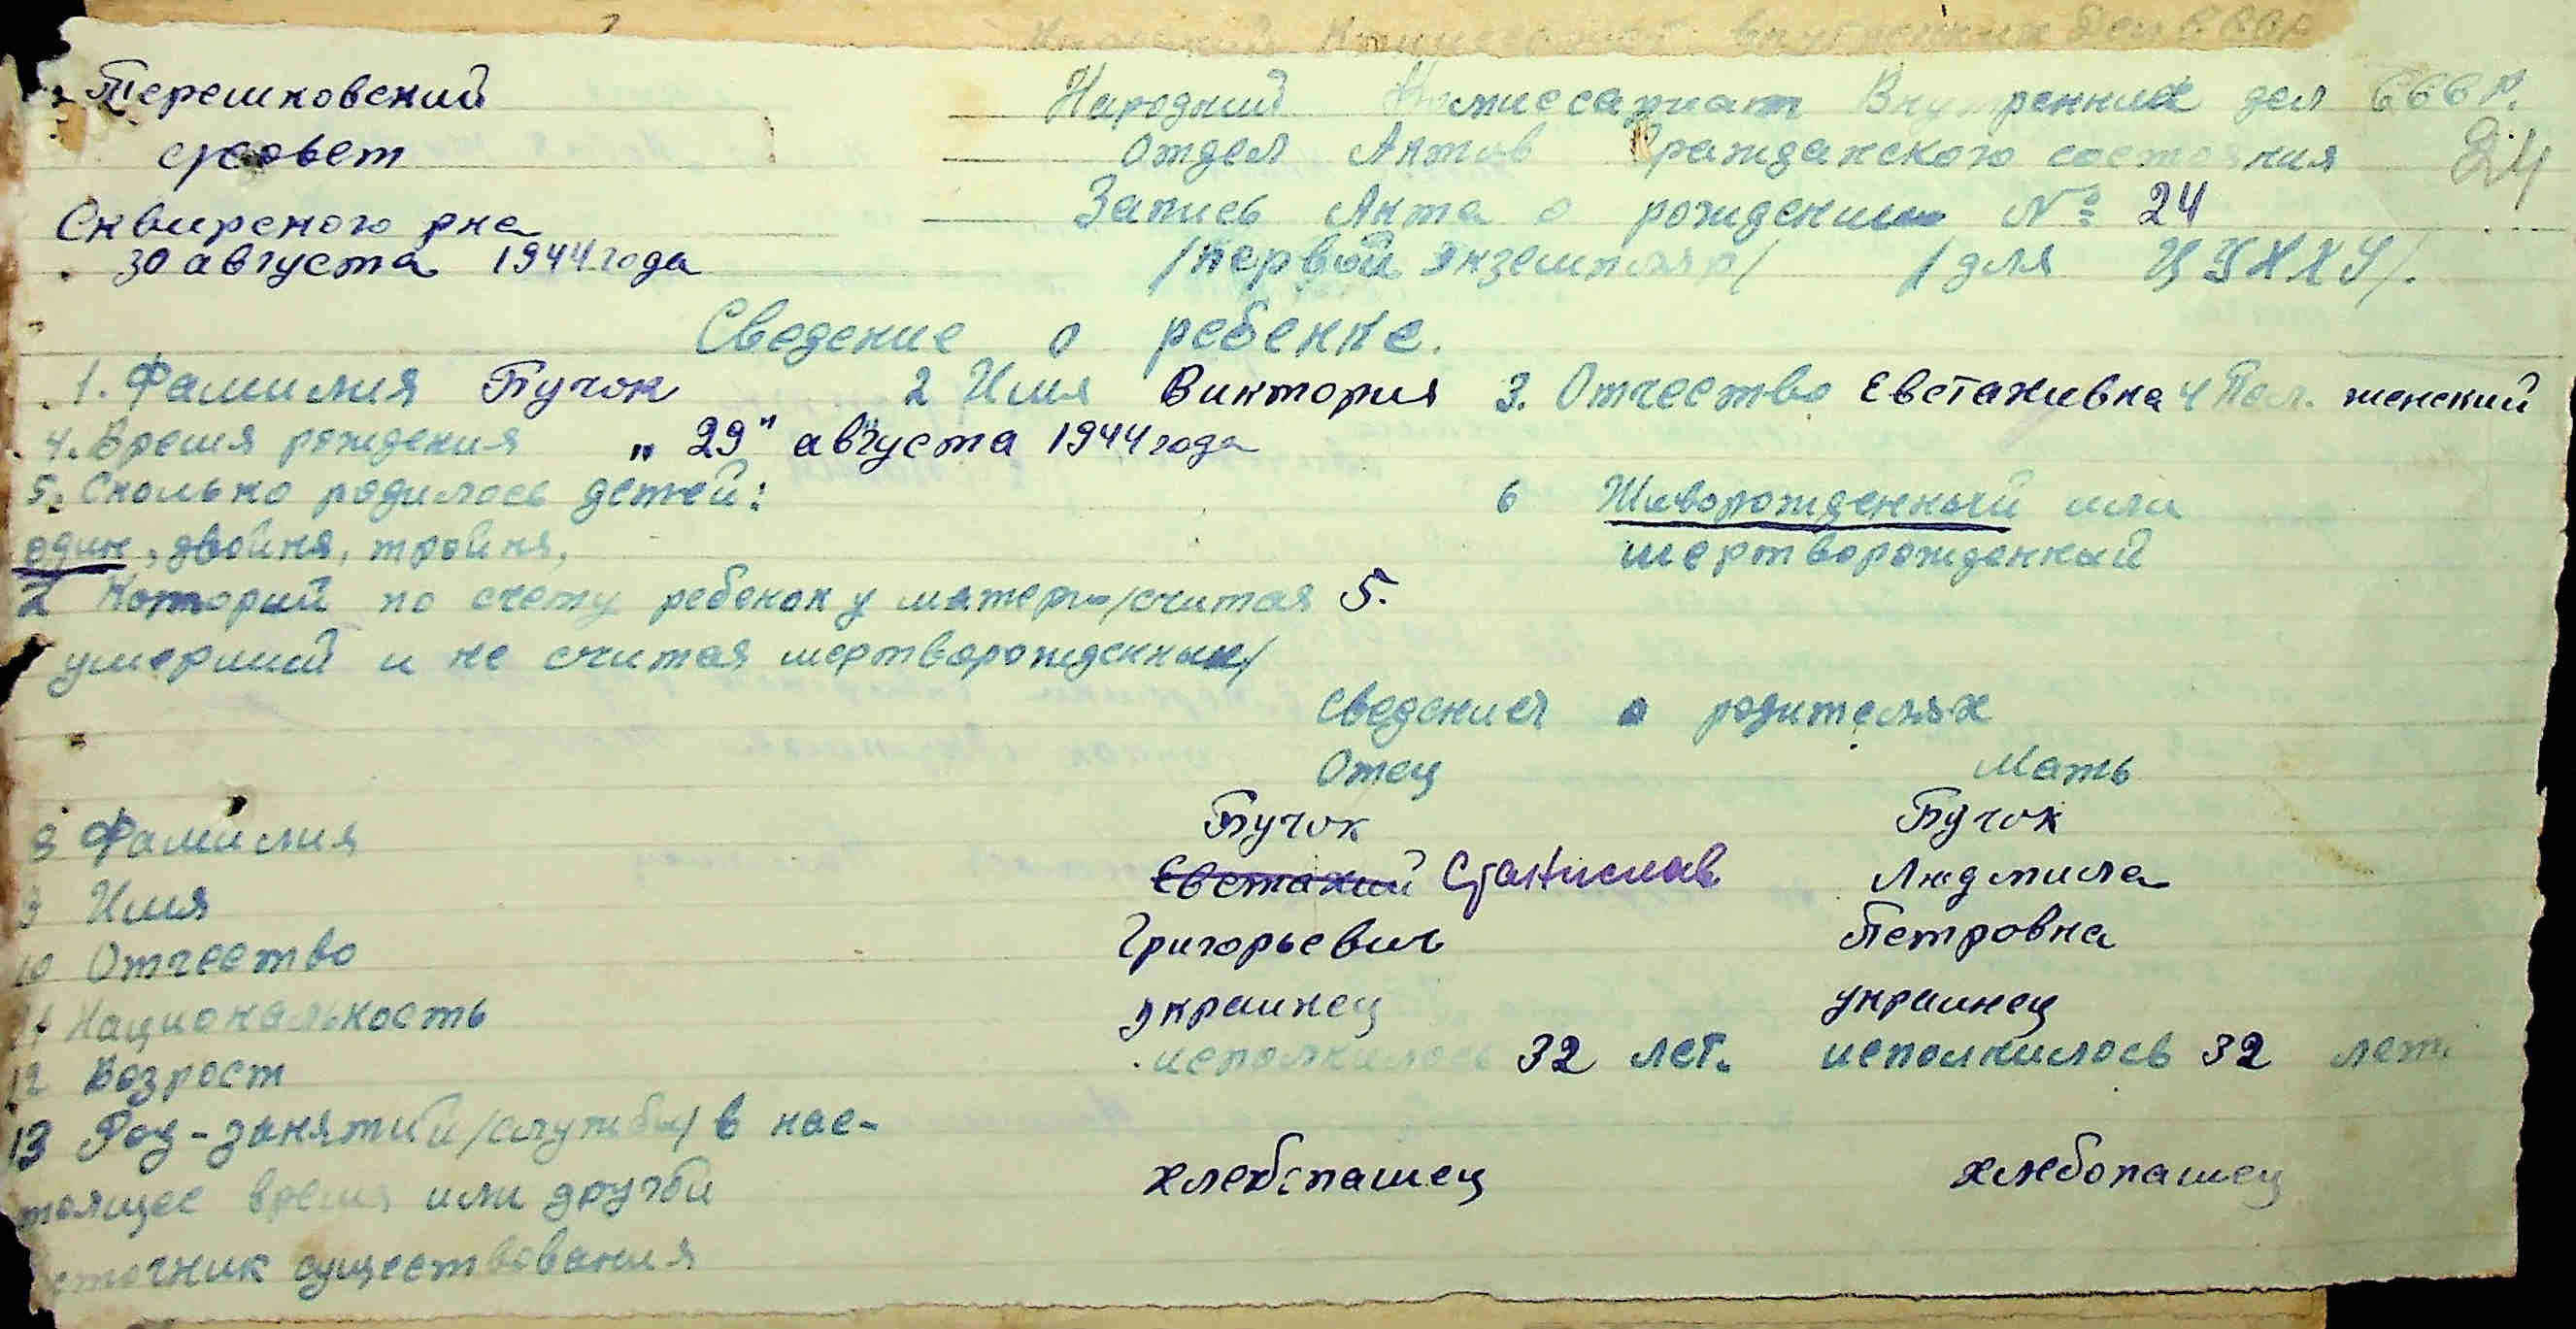 Терешковский
с/совет
Сквирского р-на
30 августа 1944 года
Народний Комиссариат Внутренних дел СССР.
Отдел Актов Гражданского состояния
24
Запись Акта о рождении № 24
/первой экземпляр/ /для ЦУНХУ/.
Сведение о ребенке.
1. Фамилия Бучок 2 Имя Виктория 3. Отчество Евстахивна 4 Пол. женский
4. Время рождения „29" августа 1944 года
5. Сколько родилось детей:
один, двойня, тройня,
6 Живорожденный или
мертворожденный
7 Которий по счету ребенок у матери /считая 5.
умерший и не считая мертворожденных/
Сведения о родителях
Отец Мать
8 Фамилия Бучок Бучок
9 Имя Евстахий Станислав Людмила
10 Отчество Григорьевич Петровна
11 Национальность украинец украинец
12 Возрост исполнилось 32 лет. исполнилось 32 лет.
13 Род-занятий /службы/ в нас-
тоящее время или другби
источник существования
хлебопашец хлебопашец